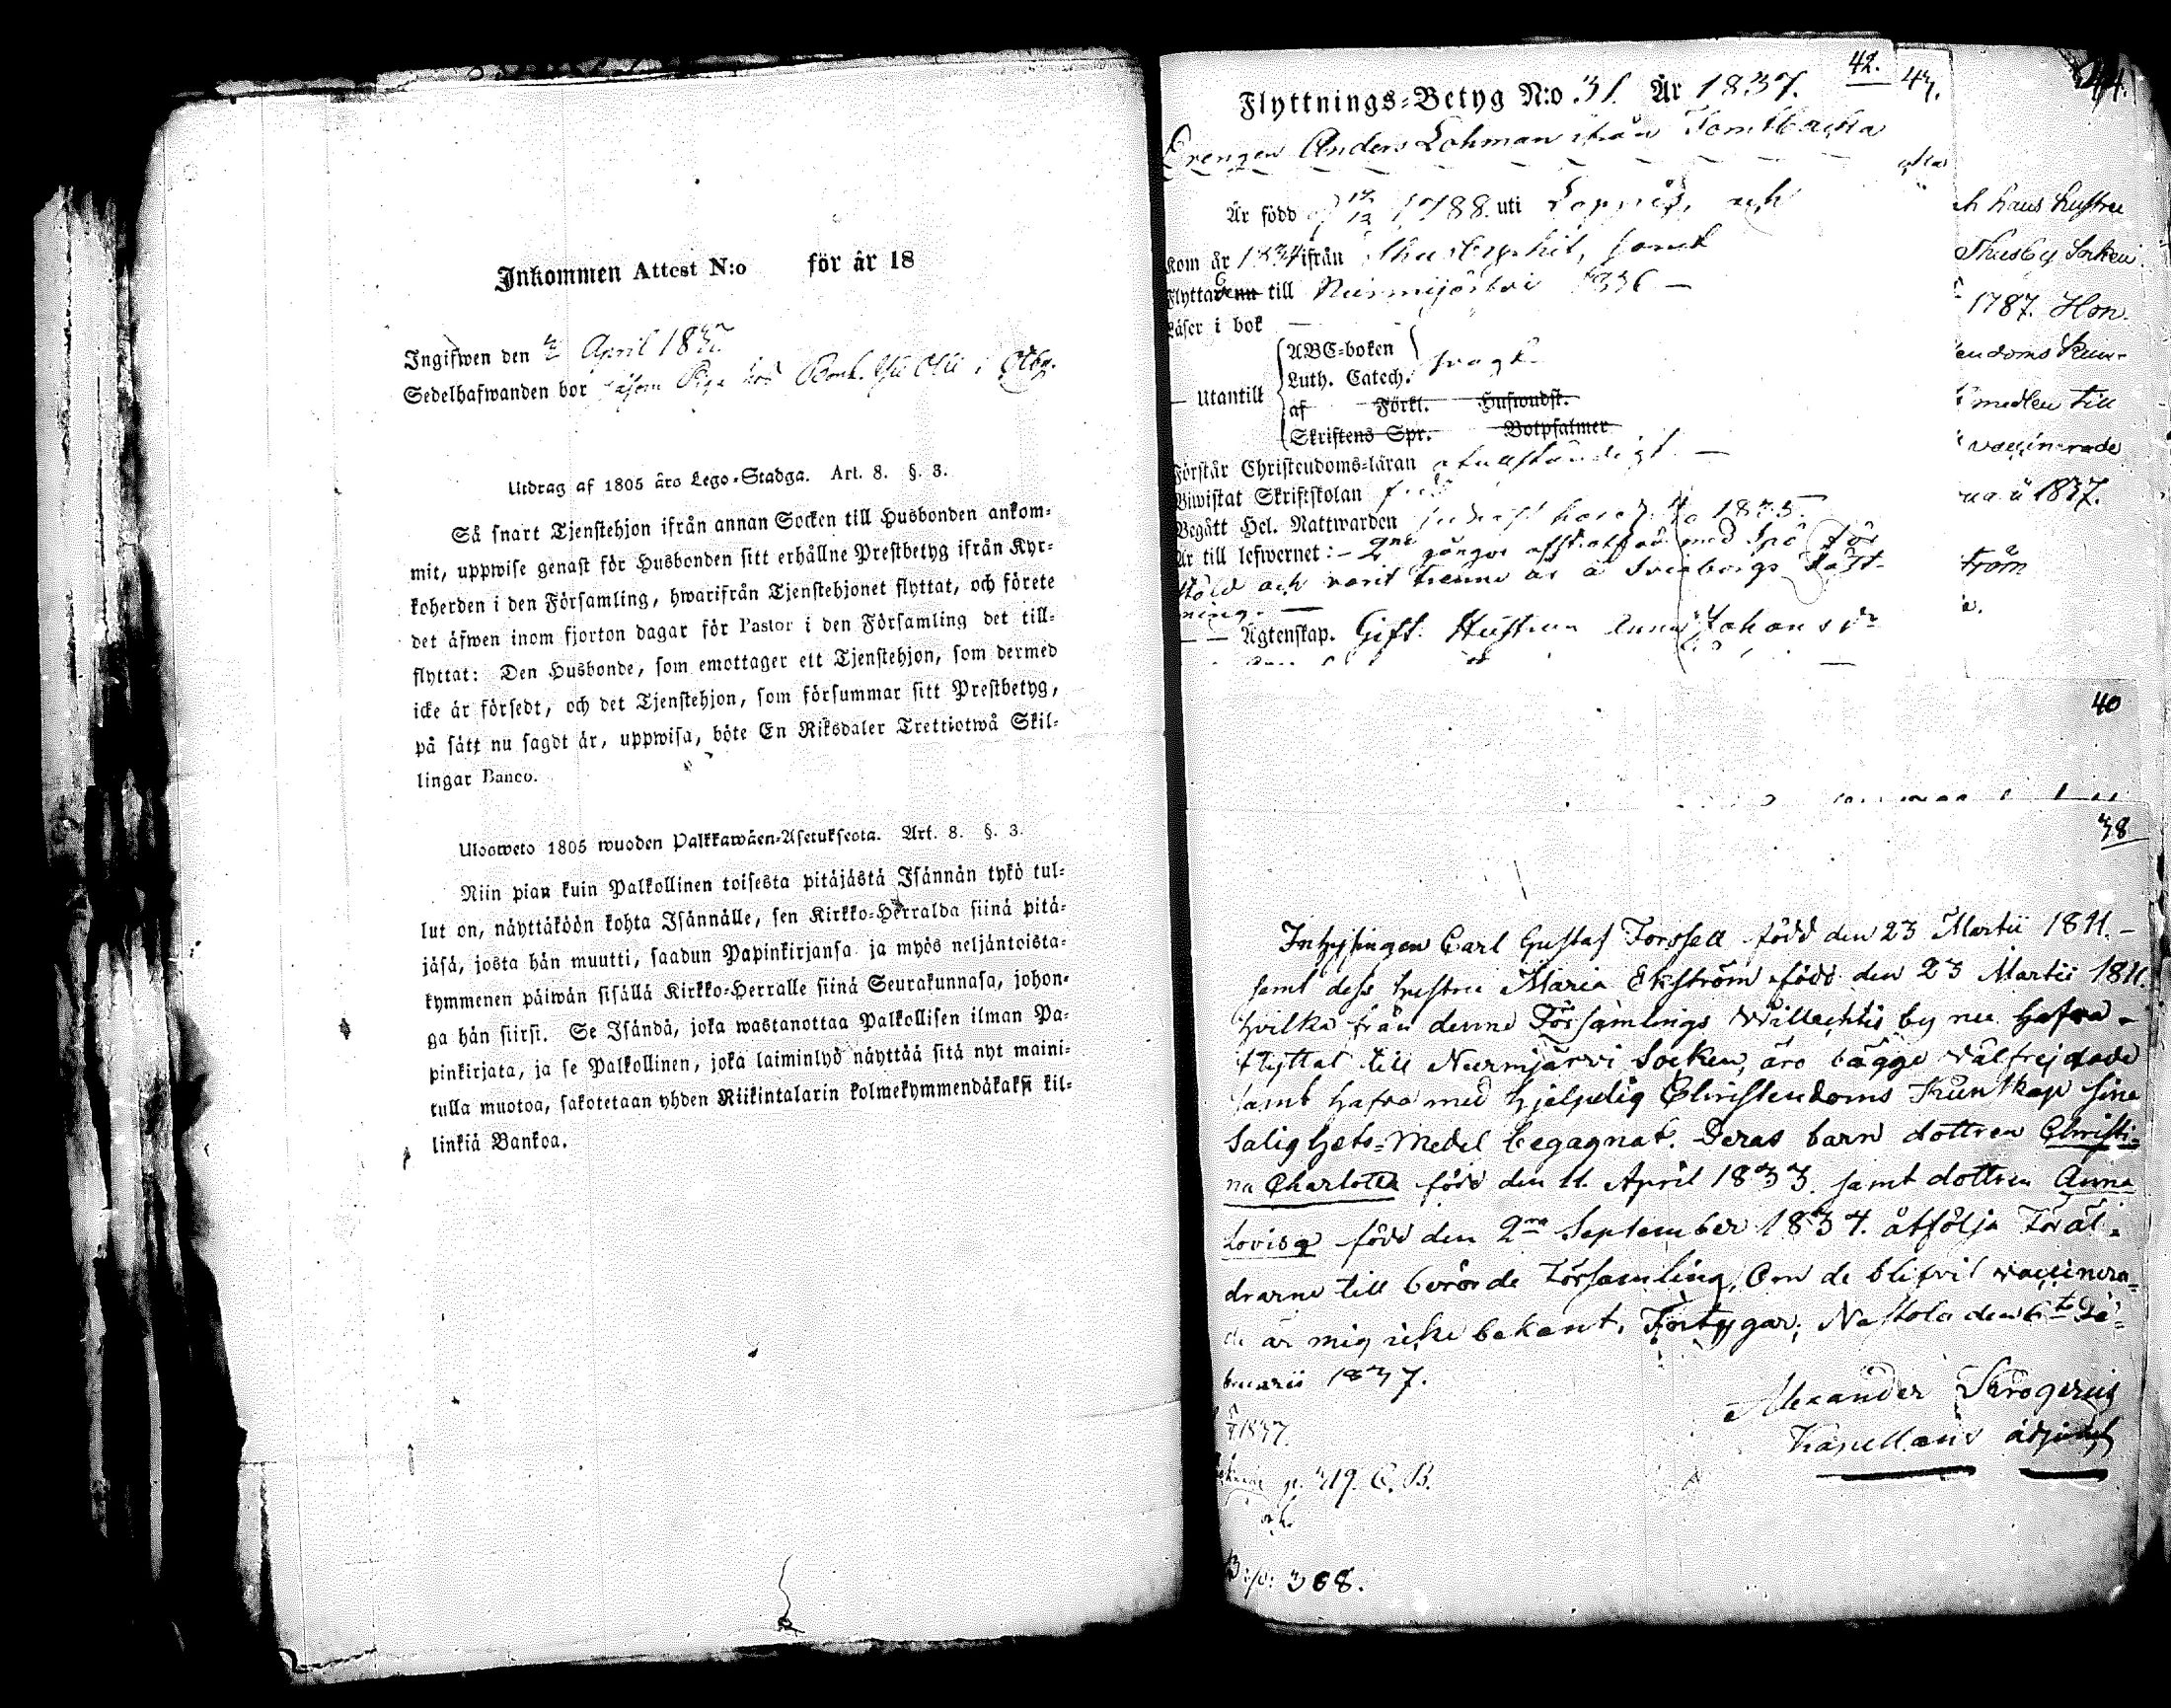 Inkommen Attest N:o för år 18
Ingifwen den April 1837
Sedelhafwanden bor såsom Piga hos i
Utdrag af 1805 års Lego-Stadga. Art. 8. §. 3.
Så snart Tjenstehjon ifrån annan Socken till Husbonden ankom-
mit, uppwise genast för Husbonden sitt erhållne Prestbetyg ifrån Kyr-
koherden i den Församling, hwarifrån Tjenstehjonet flyttat, och förete
det äfwen inom fjorton dagar för Pastor i den Församling det till-
flyttat: Den Husbonde, som emottager ett Tjenstehjon, som dermed
icke är försedt, och det Tjenstehjon, som försummar sitt Prestbetyg,
på sätt nu sagdt är, uppwisa, böte En Riksdaler Trettiotwå Skil-
lingar Banco.
Ulosweto 1805 wuoden Palkkawäen-Asetuksesta. Art. 8. §. 3.
Niin pian kuin Palkollinen toisesta pitäjästä Isännän tykö tul-
lut on, näyttäköön kohta Isännälle, sen Kirkko-Herralda siinä pitä-
jäsä, josta hän muutti, saadun Papinkirjansa ja myös neljäntoista-
kymmenen päiwän sisällä Kirkko-Herralle siinä Seurakunnasa, johon-
ga hän siirsi. Se Isändä, joka wastanottaa Palkollisen ilman Pa-
pinkirjata, ja se Palkollinen, joka laiminlyö näyttää sitä nyt maini-
tulla muotoa, sakotetaan yhden Riikintalarin kolmekymmendäkaksi kil-
linkiä Bankoa.
42.
43.
44.
Flyttnings-Betyg N:o 31. År 1837.
Drengen Anders Lohman ifrån Tomtbacka
Är född 1788. uti Loppis, och
kom år 1834 ifrån Thusby hit, samt
Flyttade till Nurmijärvi 1836 —
Läser i bok —
— Utantill
ABC-boken
Luth. Catech. svagt.
af Förkl. Hufwudst.
Skriftens Spr. Botpsalmer
Förstår Christendoms-läran ofullständigt. —
Biwistat Skriftskolan
Begått Hel. Nattwarden 1835 —
Är till lefwernet: — 2ne gånger afstraffad med Spö för
stöld och varit trenne år å Sveaborgs Fäst-
ning. —
— — Ägtenskap. Gift. Hustrun Anna Johansdr
h hans hustru
Thusby Socken
1787. Hon
endoms Kun-
medlen till
vaccinerade
1837.
tröm
40
38
Inhysingen Carl Gustaf Forssell född den 23 Martii 1811. —
samt dess hustru Maria Ekström född den 23 Martii 1811.
hvilka från denne Församlings Villechtis by nu hafva
flyttat till Nurmjärvi Socken, äro bägge välfrejdade
samt hafva med hjelpelig Christendoms Kunskap sine
Salighets-Medel begagnat. Deras barn dottren Christi-
na Charlotta född den 11. April 1833. samt dottren Anna
Lovisa född den 2ne September 1834. åtfölja Föräl-
drarne till berörde Församling, Om de blifvit vaccinera-
de är mig icke bekant, Förtygar; Nastola den 6te Fe-
bruarii 1837.
Alexander Skrogerus
Kapellans adjunct
1837.
p. 319. C. B.
368.